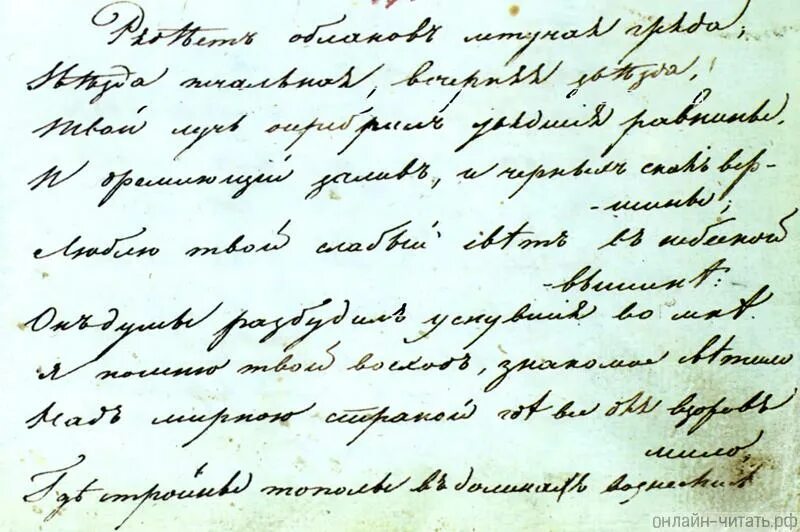 Рѣдѣетъ облаковъ летучая гряда;
Звѣзда печальная, вечерняя звѣзда,
Твой лучь осеребрилъ увядшія равнины,
И дремлющій заливъ, и черныхъ скалъ вер-
-шины;
Люблю твой слабый свѣтъ въ небесной
-вышинѣ:
Онъ думы разбудилъ уснувшія во мнѣ.
Я помню твой восходъ, знакомое свѣтило
Надъ мирною страной гдѣ все для взоровъ
мило,
Гдѣ стройны тополы въ долинахъ вознеслись
онлайн-читать.рф